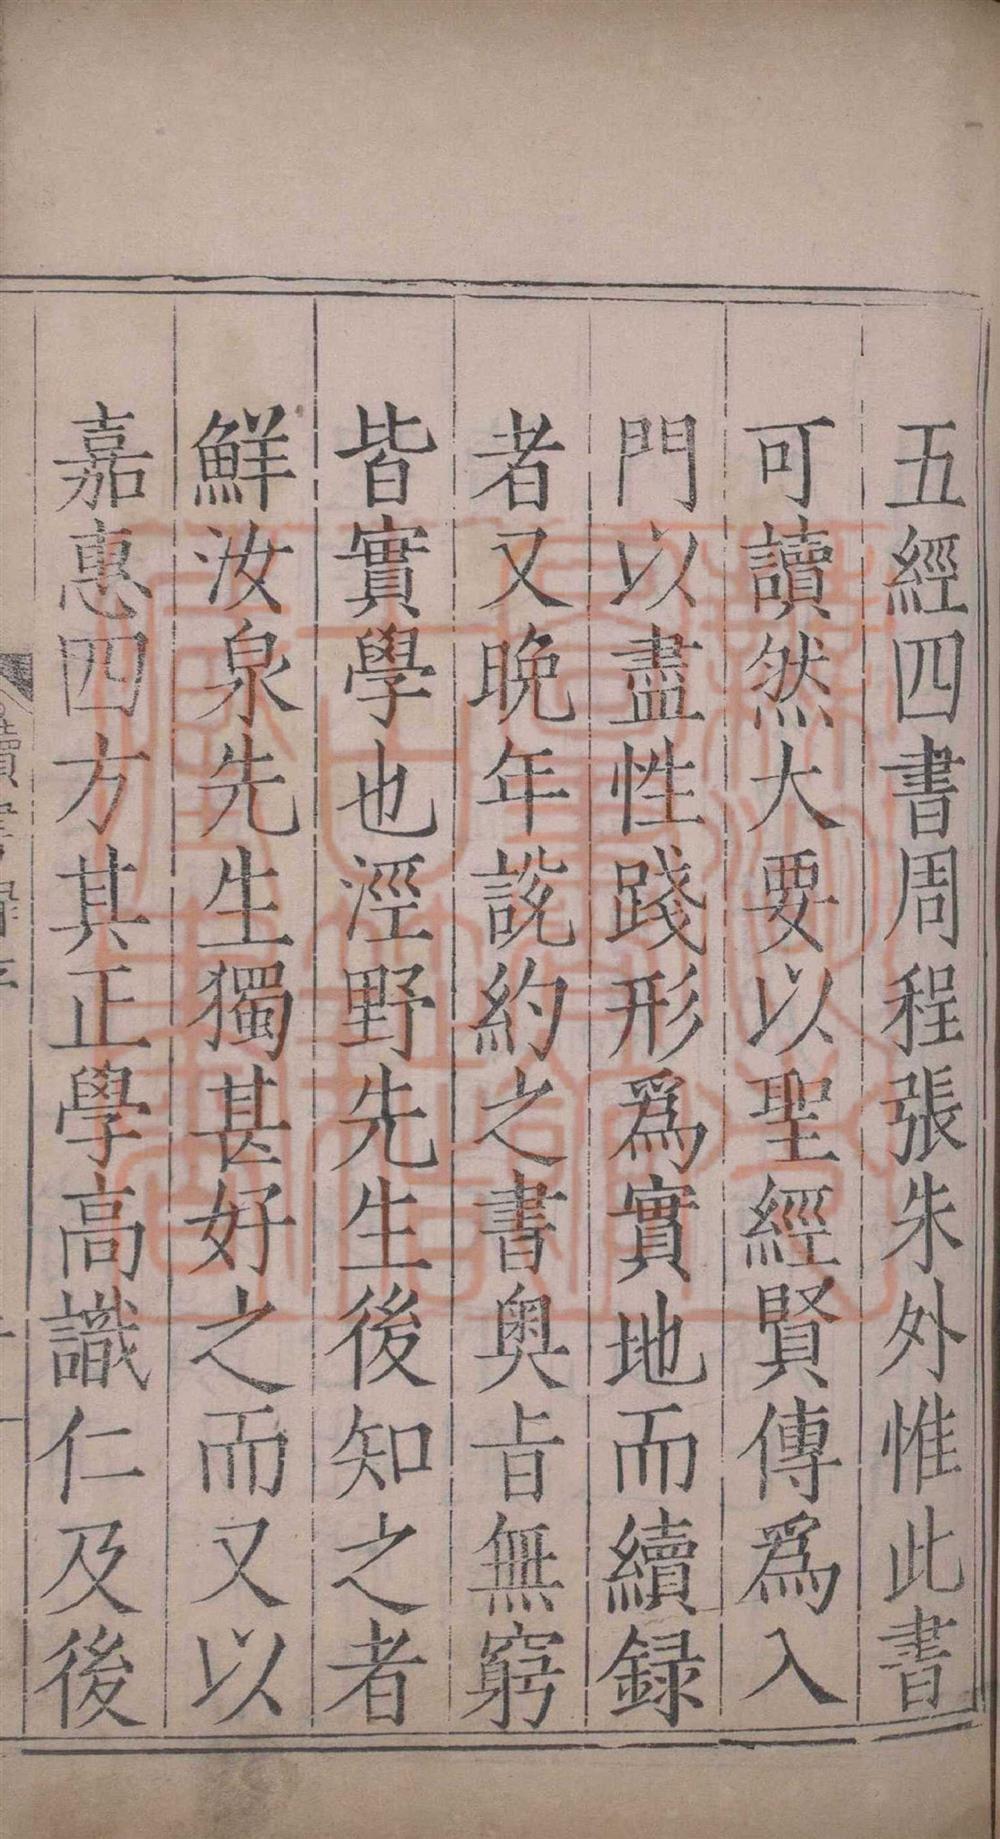 五經四書周程張朱外惟此書
可讀然大要以聖經賢傳爲入
門以盡性踐形爲實地而續録
者又晚年説約之書奥旨無窮
皆實學也涇野先生後知之者
鮮汝泉先生獨甚好之而又以
嘉惠四方其正學高識仁及後
讀書録序